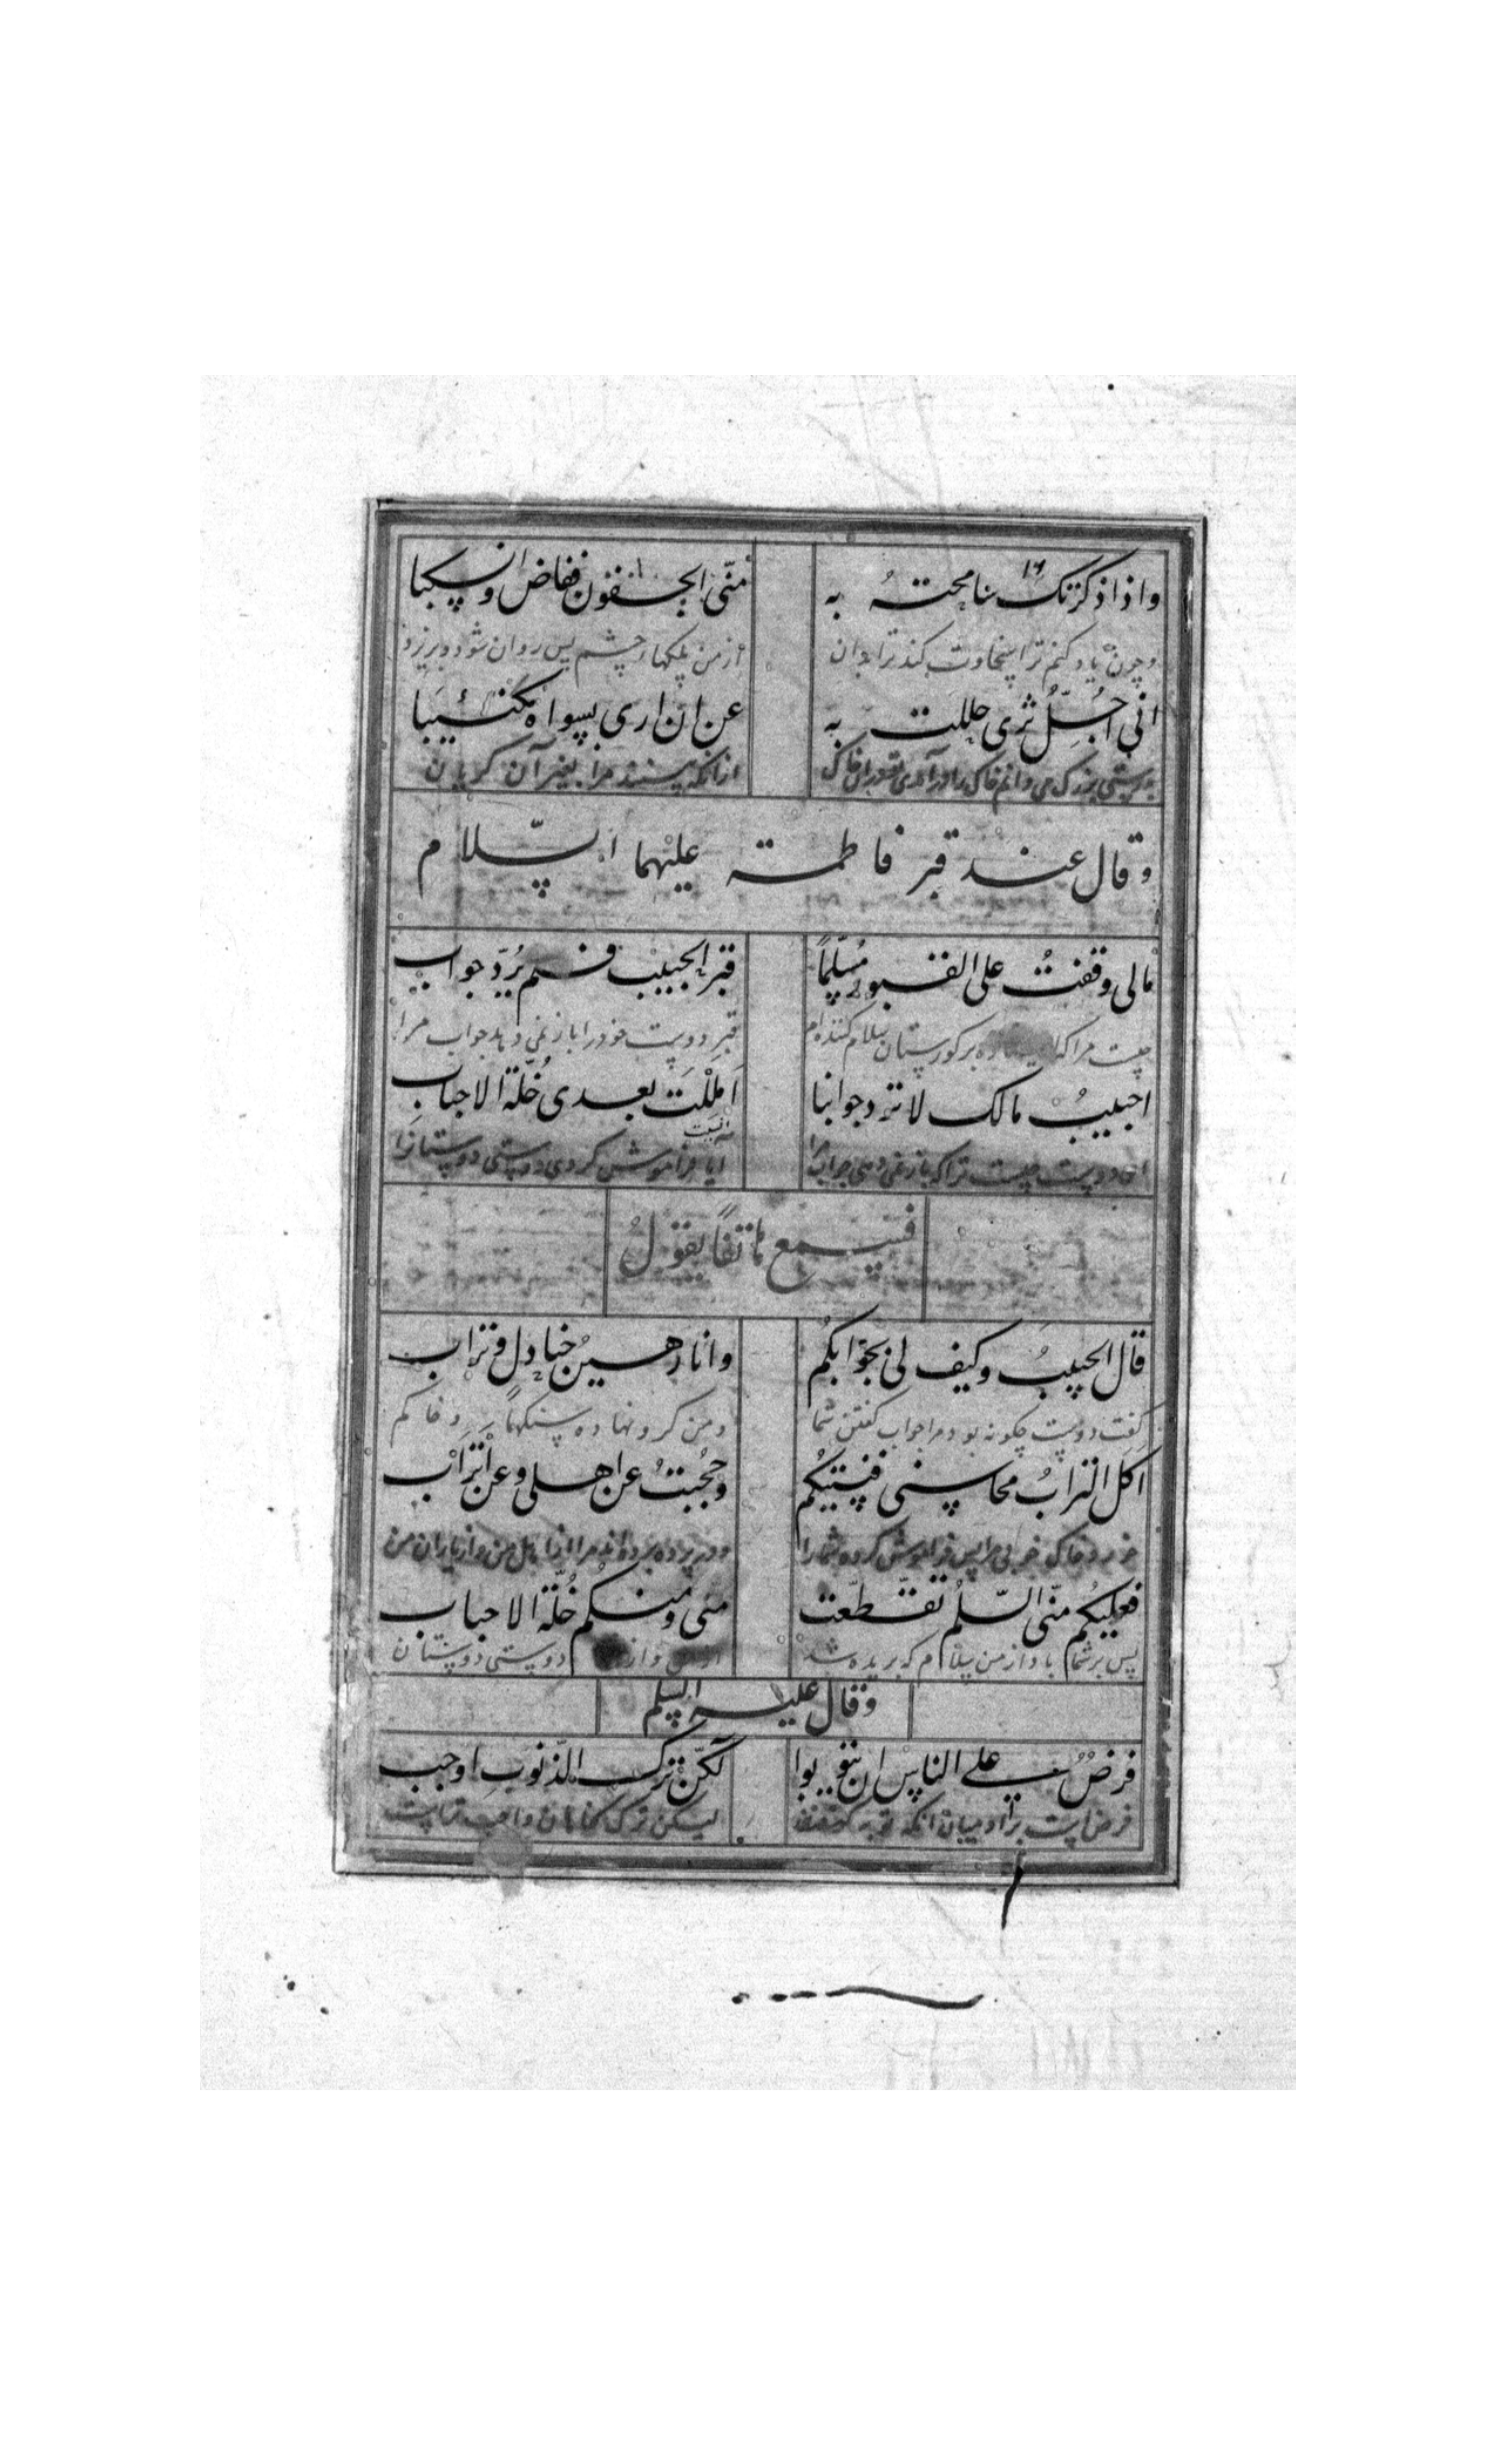 واذا ذكرتك سامحتهُ به منّى الجفون ففاض وانسكبا
وچون ياد كنم ترا سخاوت كند ترا بدان از من پلكهاء چشم پس روان شود و بريزد
انى اجُلُّ ثرى حللت به عن ان ارى بسواه مكتئبا
بزرگ مى دانم خاك را از آنكه بينند مرا بغير آن گريان
وقال عند قبر فاطمة عليهما السّلام
مالى وقفتُ على القبور مُسلّماً قبر الحبيب فلم يُردّ جواب
چيست مرا كه بر گورستان سلام كننده ام قبر دوست خود را باز نمى دهد جواب مرا
احبيبُ مالك لا ترد جوابنا امللت بعدى خُلّة الاحباب
اى دوست چيست ترا كه باز نمى دهى جواب آيا فراموش كردى دوستى دوستانرا
فيسمع هاتفاً يقولُ
قال الحبيبُ وكيف لى بجوابكُم وانا رهينُ جنادل وتراب
گفت دوست چگونه بود مرا جواب گفتن شما ومن گرو نهاده سنگها و خاكم
اكل الترابُ محاسنى فنسيتكُم وحُجبتُ عن اهلى وعن اتراب
خورد خاك خوبى مرا پس فراموش كردم شما را ودر پرده برده اند مرا از اهل من واز ياران من
فعليكُم منّى السّلمُ تقطّعت منى ومنكم خُلّة الاحباب
پس بر شما باد از من سلام كه بريده شد از من واز دوستى دوستان
وقال عليه السلم
فرضٌ على الناس ان يتوبوا لكنّ ترك الذّنوب اوجب
فرض است بر آدميان آنكه توبه كنند ليكن ترك گناهان واجب تر است